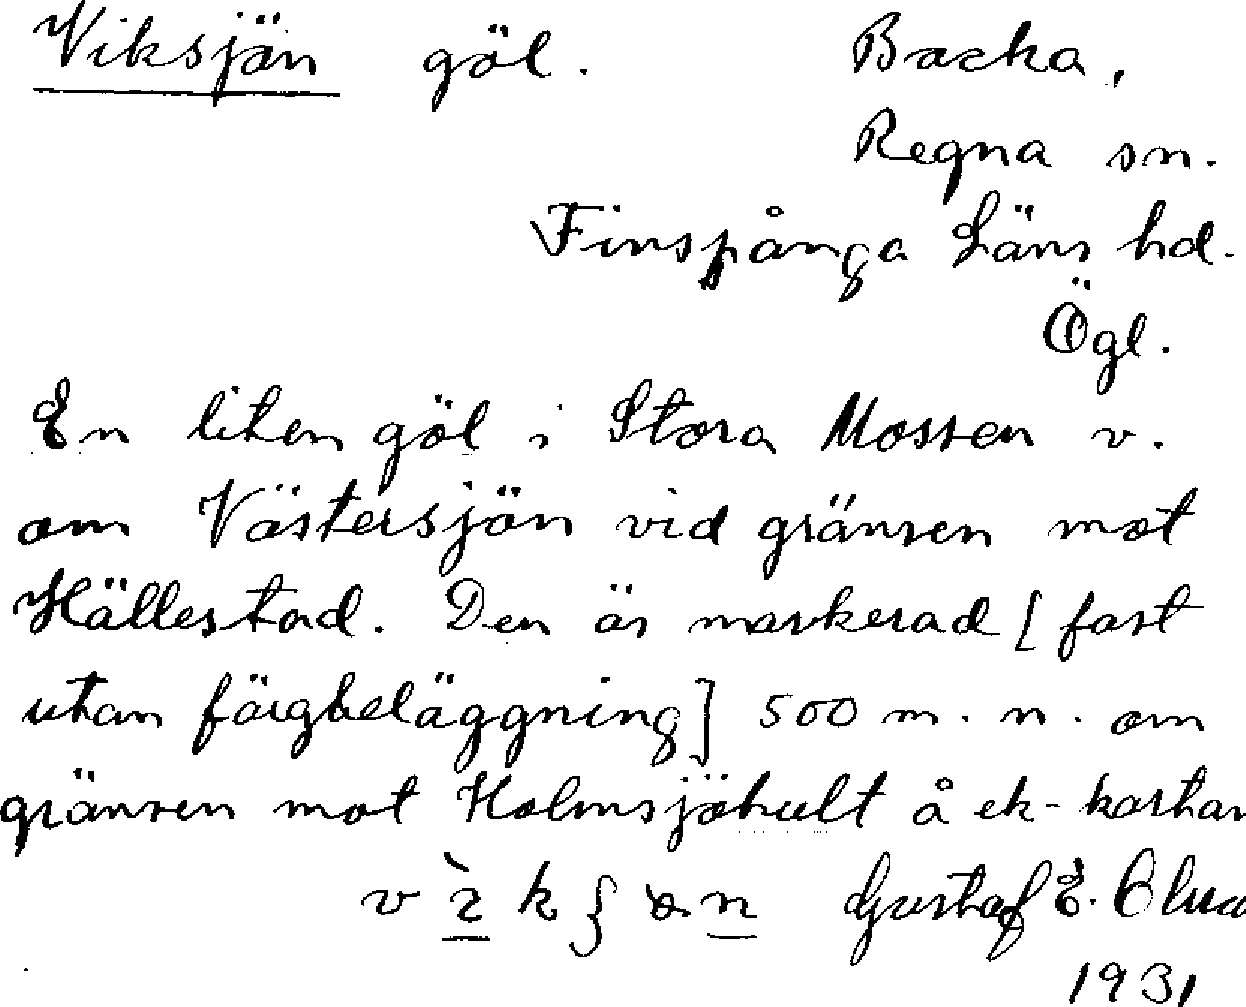 Viksjön göl. Backa,
Regna sn.
Finspånga Läns hd.
Ögl.
En liten göl i Stora Mossen v.
om Västersjön vid gränsen mot
Hällestad. Den är markerad [fast
utan färgbeläggning] 500 m. n. om
gränsen mot Holmsjöhult å ek-kartan
Gustaf E.
1931